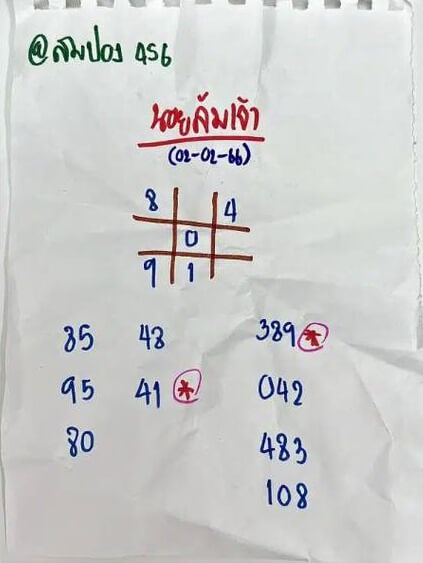 @สมปอง 456
หอยล้มเจ้า
(02-02-66)
8 4
0
9 1
85 48 389*
95 41 * 042
80 483
108